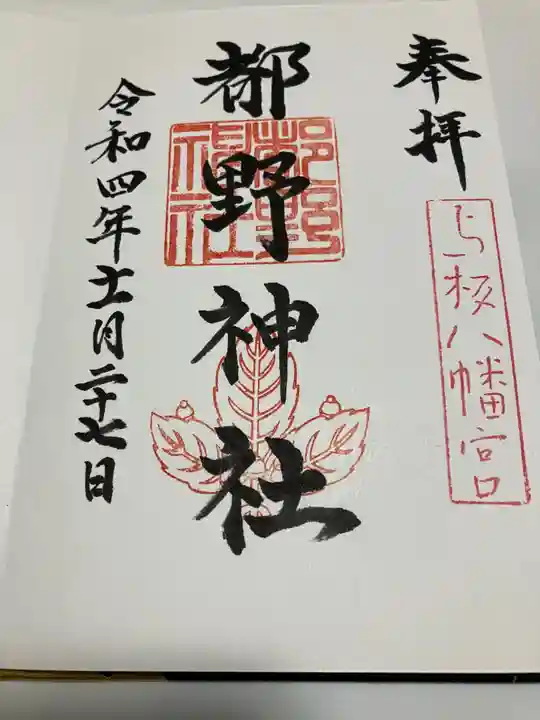 奉拝
与板八幡宮
都野神社
都野
神社
令和四年十一月二十七日